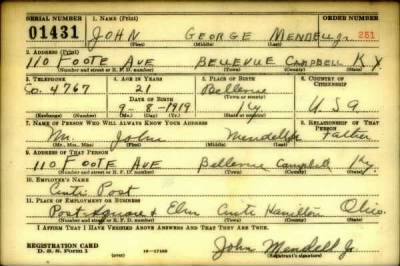 SERIAL NUMBER 1. NAME (Print) ORDER NUMBER
01431 JOHN GEORGE MENDELL Jr. 251
(First) (Middle) (Last)
2. ADDRESS (Print)
110 FOOTE AVE BELLEVUE CAMPBELL KY
(Number and street or R. F. D. number) (Town) (County) (State)
3. TELEPHONE 4. AGE IN YEARS 5. PLACE OF BIRTH 6. COUNTRY OF CITIZENSHIP
Co. 4767 21 Bellevue
DATE OF BIRTH
9-8-1919 Ky. USA
(Exchange) (Number) (Mo.) (Day) (Yr.) (State or country)
7. NAME OF PERSON WHO WILL ALWAYS KNOW YOUR ADDRESS 8. RELATIONSHIP OF THAT PERSON
Mr. John Mendell Father
(Mr., Mrs., Miss) (First) (Middle) (Last)
9. ADDRESS OF THAT PERSON
110 FOOTE AVE Bellevue Campbell Ky.
(Number and street or R. F. D. number) (Town) (County) (State)
10. EMPLOYER'S NAME
Post
11. PLACE OF EMPLOYMENT OR BUSINESS
Post Square & Elm Hamilton Ohio.
(Number and street or R. F. D. number) (Town) (County) (State)
I AFFIRM THAT I HAVE VERIFIED ABOVE ANSWERS AND THAT THEY ARE TRUE.
REGISTRATION CARD John Mendell Jr
D. S. S. Form 1 16-17105 (Registrant's signature)